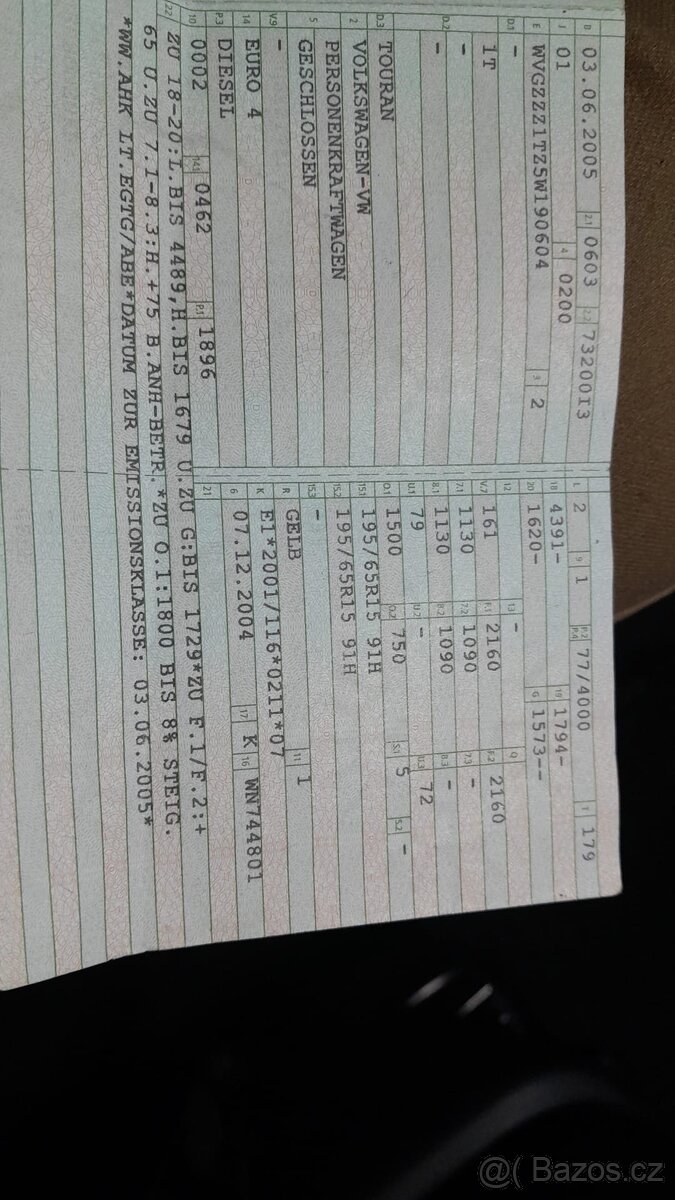 B 03.06.2005 2.1 0603 2.2 7320013
J 01 4 0200
E WVGZZZ1TZ5W190604 3 2
D.1 -
1T
D.2 -
-
D.3 TOURAN
2 VOLKSWAGEN-VW
5 PERSONENKRAFTWAGEN
GESCHLOSSEN
V.9 -
14 EURO 4
P.3 DIESEL
10 0002 14.1 0462 P.1 1896
L 2 9 1 P.2 P.4 77/4000 T 179
18 4391- 19 1794-
20 1620- G 1573--
12 - 13 - Q
V.7 161 F.1 2160 F.2 2160
7.1 1130 7.2 1090 7.3 -
8.1 1130 8.2 1090 8.3 -
U.1 79 U.2 - U.3 72
O.1 1500 O.2 750 S.1 5 S.2 -
15.1 195/65R15 91H
15.2 195/65R15 91H
15.3 -
R GELB 11 1
K E1*2001/116*0211*07
6 07.12.2004 17 K 16 WN744801
21
22 ZU 18-20:L.BIS 4489,H.BIS 1679 U.ZU G:BIS 1729*ZU F.1/F.2:+
65 U.ZU 7.1-8.3:H.+75 B.ANH-BETR.*ZU O.1:1800 BIS 8% STEIG.
*WW.AHK LT.EGTG/ABE*DATUM ZUR EMISSIONSKLASSE: 03.06.2005*
@( Bazos.cz